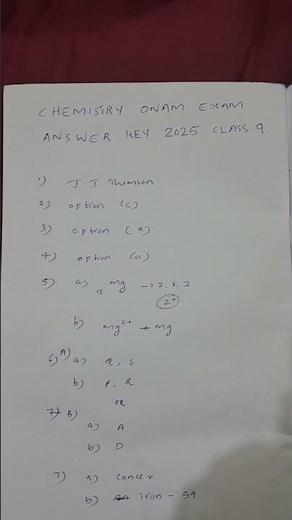 CHEMISTRY ONAM EXAM
ANSWER KEY 2025 CLASS 9
1) J.J Thomson
2) option (c)
3) option (a)
4) option (a)
5) a) 12 Mg → 2, 8, 2
2+
b) Mg2+ + Mg
6) A) a) Q, S
b) P, R
or
B)
a) A
b) D
7) a) cancer
b) iron - 59